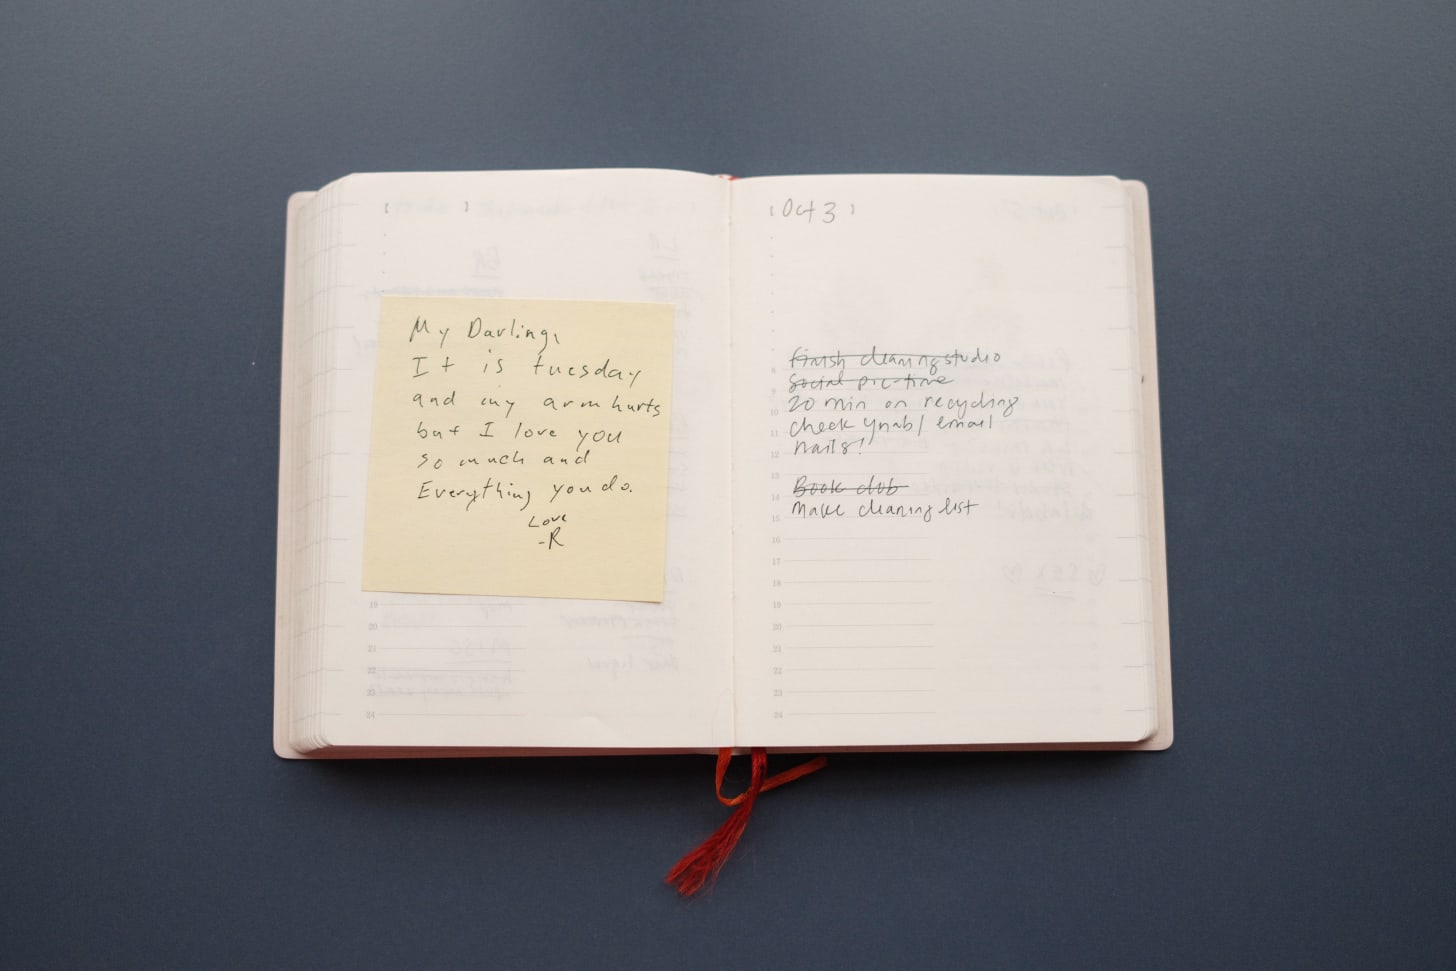 My Darling,
It is tuesday
and my arm hurts
but I love you
so much and
Everything you do.
Love
-R
19
20
21
22
23
24
Oct 3
Finish cleaning studio
Social pre-time
20 min on recycling
check ynab/ email
nails!
Book club
Make cleaning list
8
9
10
11
12
13
14
15
16
17
18
19
20
21
22
23
24